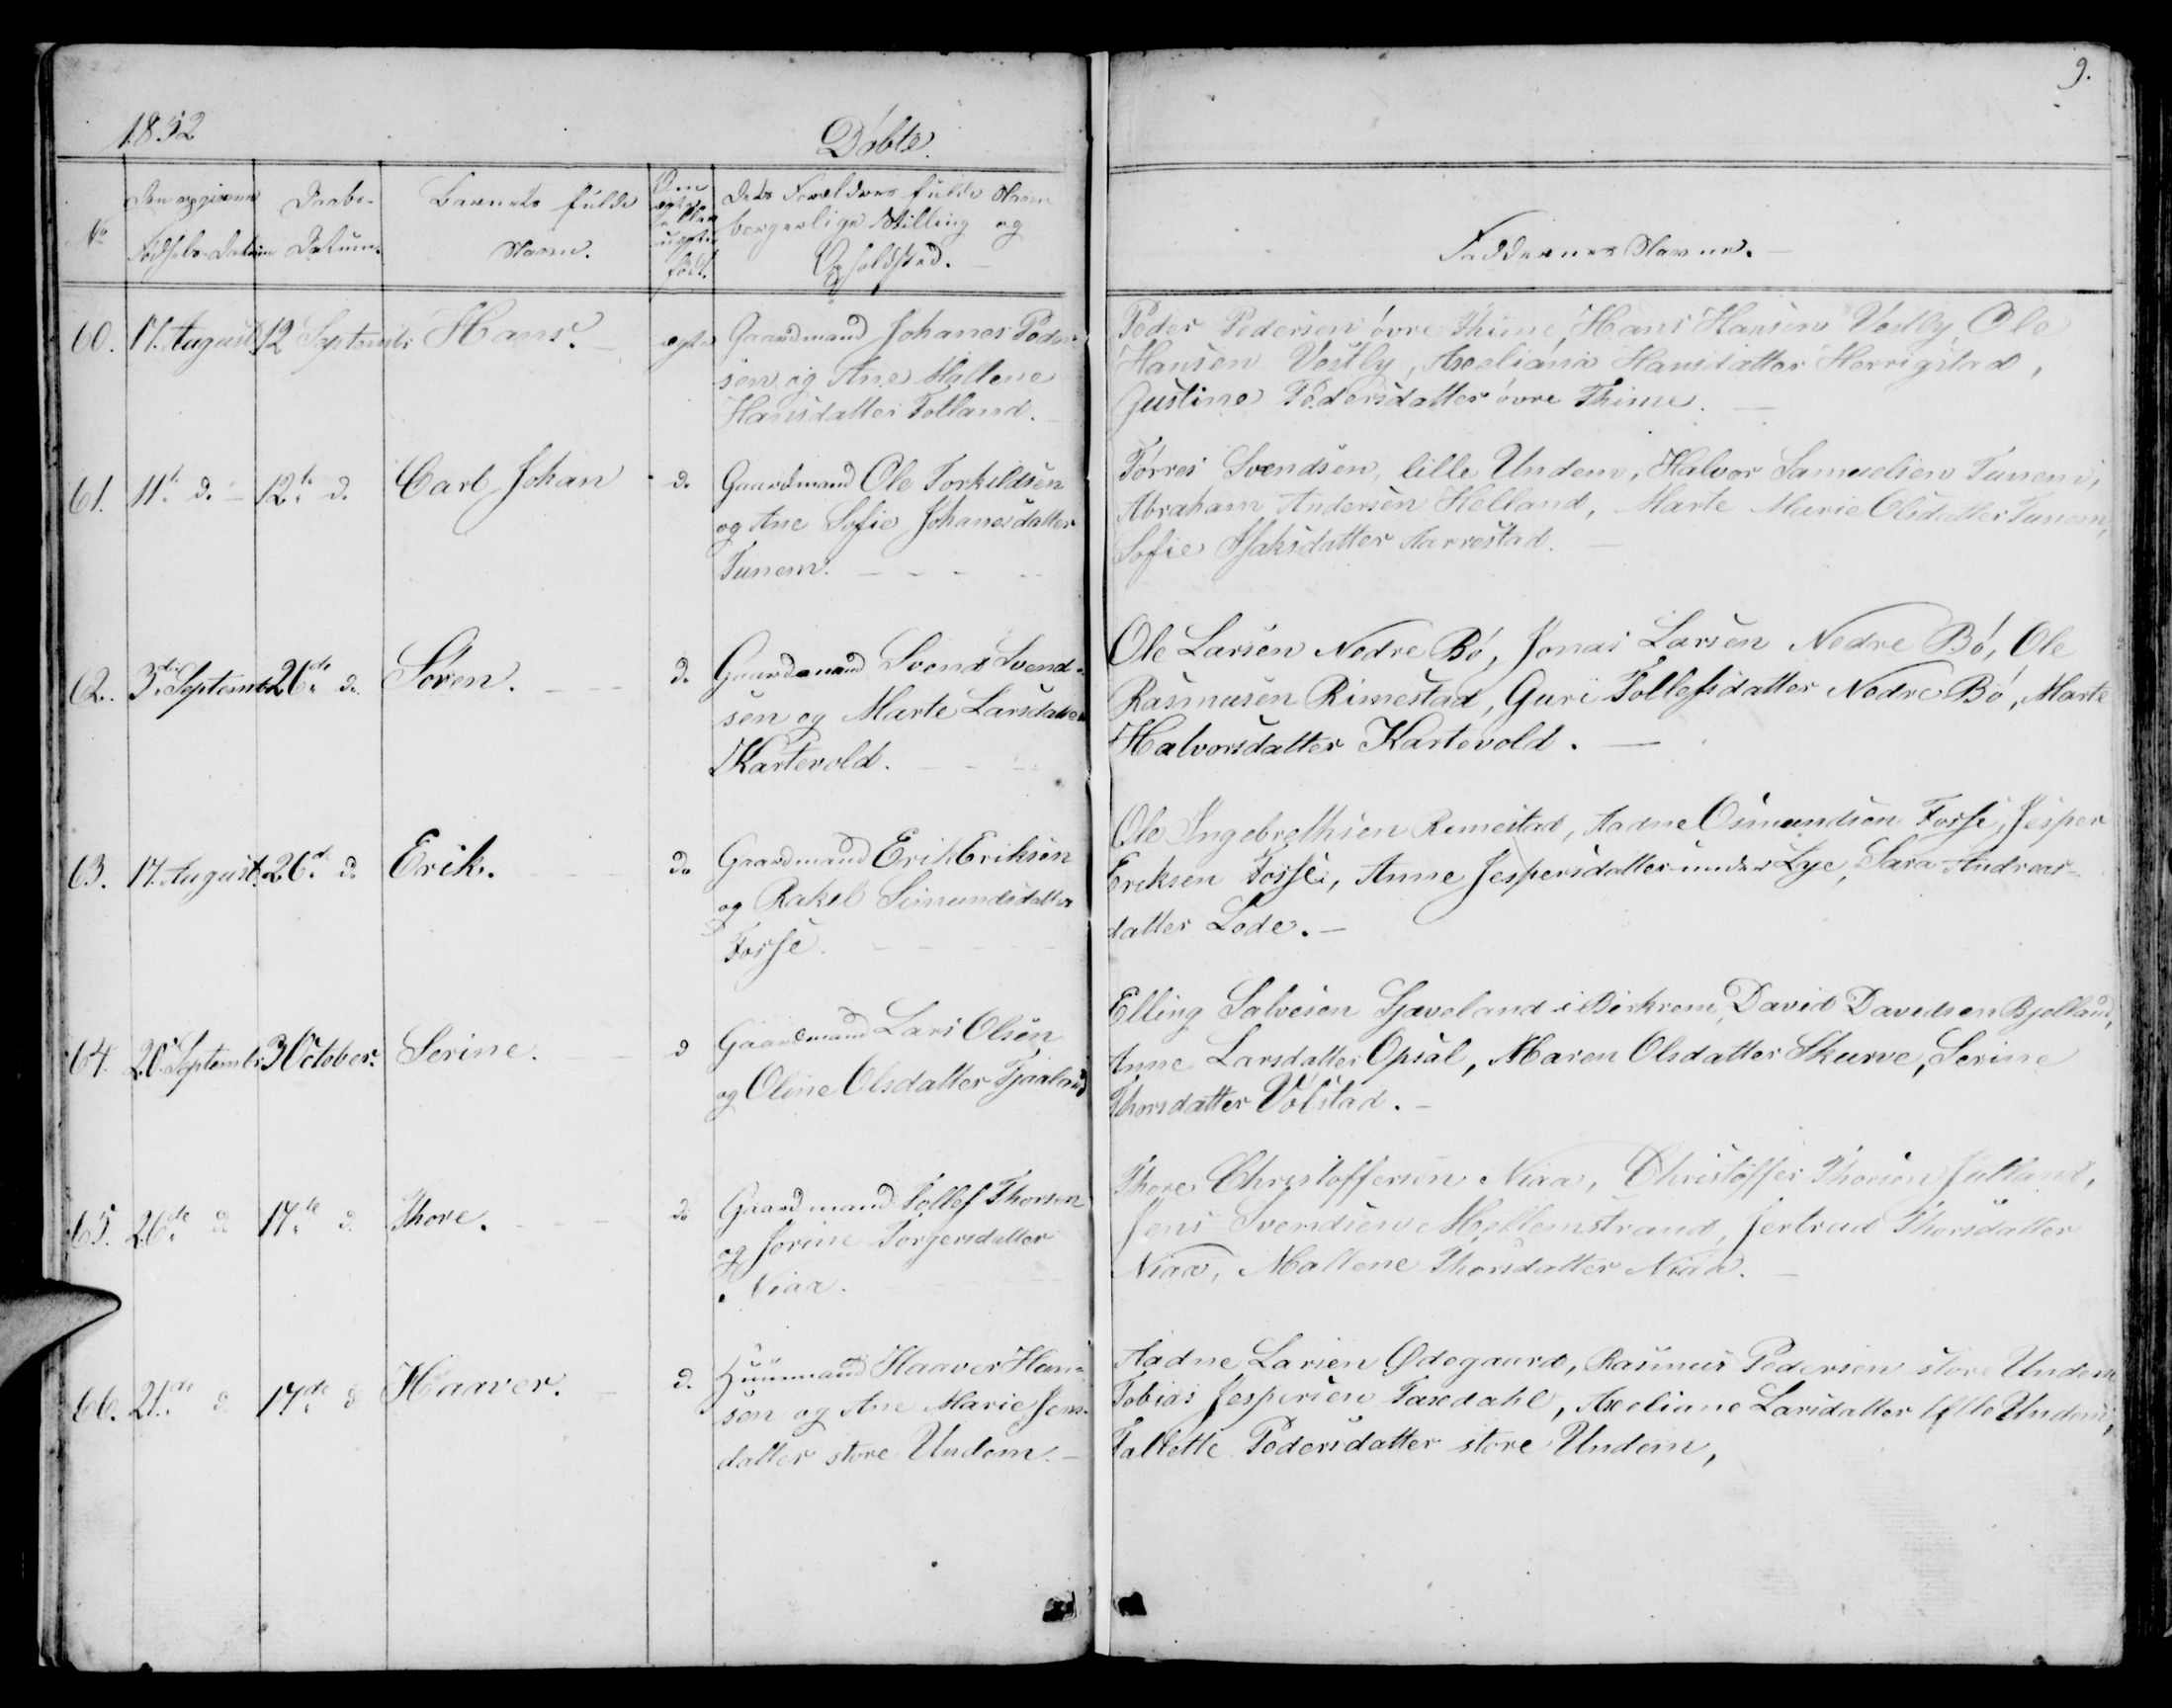 9.
1852
Døbte.
No
Den opgivne
Fødsels-Datum
Daabs-
Datum.
Barnets fulde
Navn.
Om
ægte
eller
uægte
født.
Dets Forældres fulde Navn
borgerlige Stilling og
Opholdsted.
Faddernes Navne.
60. 17. August. 12 Septembr Hans. ægte Gaardmand Johanes Peder-
sen og Ane Mallene
Hansdatter Tolland.
Peder Pedersen óvre Thime, Hans Hansen Vestly, Ole
Hansen Vestly, Axeliana Hansdatter Herrigstad,
Justine Pedersdatter óvre Thime.
61. 11t d. 12te d. Carl Johan d. Gaardmand Ole Torkildsen
og Ane Sofie Johanesdatter
Tunem.
Tórres Svendsen, lille Undem, Halvor Samuelsen Tunem,
Abraham Andersen Helland, Marte Marie Olsdatter Tunem,
Sofie Isaksdatter Aarrestad.
62. 3die Septembr 26de d. Sóren. do Gaardmand Svend Svend-
sen og Marte Larsdatter
Kartevold.
Ole Larsen Nedre Bó, Jonas Larsen Nedre Bó, Ole
Rasmusen Rimestad, Guri Tollefsdatter Nedre Bó, Marte
Halvorsdatter Kartevold.
63. 17. August. 26d d. Erik. do Gaardmand Erik Eriksen
og Rakel Simundsdatter
Fosse.
Ole Ingebrethsen Remestad, Aadne Osmundsen Fosse, Jesper
Ereksen Fosse, Anne Jespersdatter under Lye, Sara Andreas-
datter Lode.
64. 20. Septembr 3 October. Serine. d Gaardmand Lars Olsen
og Oline Olsdatter Tjaaland
Elling Salvesen Gjæveland i Birkrem, David Davedsen Bjelland,
Anne Larsdatter Opsal, Maren Olsdatter Skurve, Serine
Thorsdatter Vólstad.
65. 26de d 17de d. Thore. do Gaardmand Tollef Thorsen
og Jorine Torgersdatter
Niaa.
Thore Christoffersen Niaa, Christoffer Thorsen Julland,
Jens Svendsen Mellemstrand, Jertrud Thorsdatter
Niaa, Mallene Thorsdatter Niaa.
66. 21de d 17de d Haaver. d. Huusmand Haaver Han-
sen og Ane Marie Jens-
datter store Undem.
Aadne Larsen Ødegaard, Rasmus Pedersen store Undem
Tobias Jespersen Taxedahl, Axeliane Larsdatter lille Undem,
Tallette Pedersdatter store Undem,